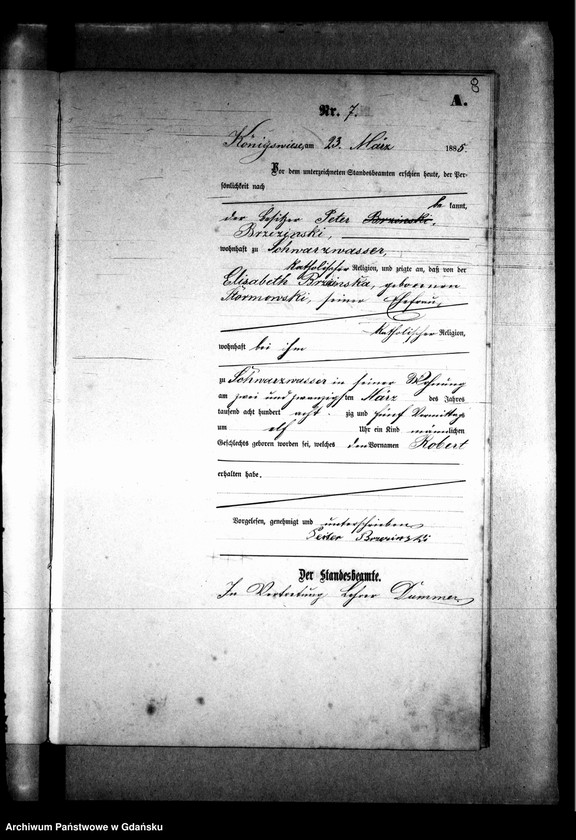 8
A.
Nr. 7.
Königswiese, am 23. März 1885.
Vor dem unterzeichneten Standesbeamten erschien heute, der Per-
sönlichkeit nach
be kannt,
der Besitzer Peter Brzinski,
Brzezinski,
wohnhaft zu Schwarzwasser,
katholischer Religion, und zeigte an, daß von der
Elisabeth Brzinska, geborenen
seiner Ehefrau,
katholischer Religion,
wohnhaft bei ihm
zu Schwarzwasser in seiner Wohnung
am zwei und zwanzigsten März des Jahres
tausend acht hundert acht zig und fünf Vormittags
um elf Uhr ein Kind männlichen
Geschlechts geboren worden sei, welches den Vornamen Robert
erhalten habe.
Vorgelesen, genehmigt und unterschrieben
Peter Brzezinski
Der Standesbeamte.
In Vertretung Lehrer Dummer
Archiwum Państwowe w Gdańsku